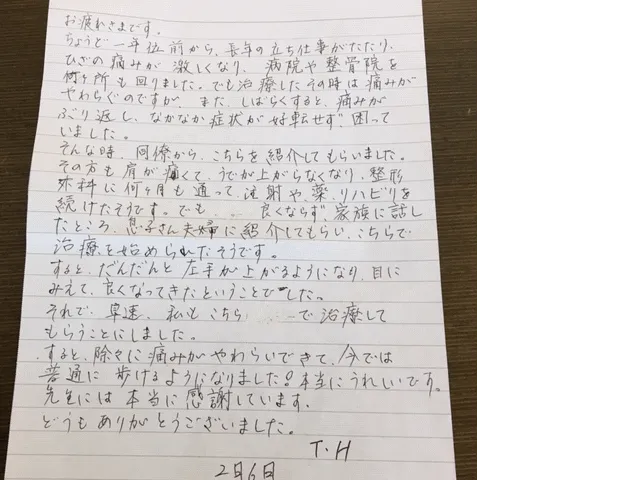 お疲れさまです。
ちょうど一年位前から、長年の立ち仕事がたたり、
ひざの痛みが激しくなり、病院や整骨院を
何ヶ所も回りました。でも治療したその時は痛みが
やわらぐのですが、また、しばらくすると、痛みが
ぶり返し、なかなか症状が好転せず、困って
いました。
そんな時、同僚から、こちらを紹介してもらいました。
その方も肩が痛くて、うでが上がらなくなり、整形
外科に何ヶ月も通って、注射や、薬、リハビリを
続けたそうです。でも 良くならず、家族に話し
たところ、息子さん夫婦に紹介してもらい、こちらで
治療を始められたそうです。
すると、だんだんと左手が上がるようになり、目に
みえて、良くなってきたということでした。
それで、早速、私もこちら で治療して
もらうことにしました。
すると、除々に痛みがやわらいできて、今では
普通に歩けるようになりました!本当にうれしいです。
先生には本当に感謝しています。
どうもありがとうございました。
T.H
2月6日